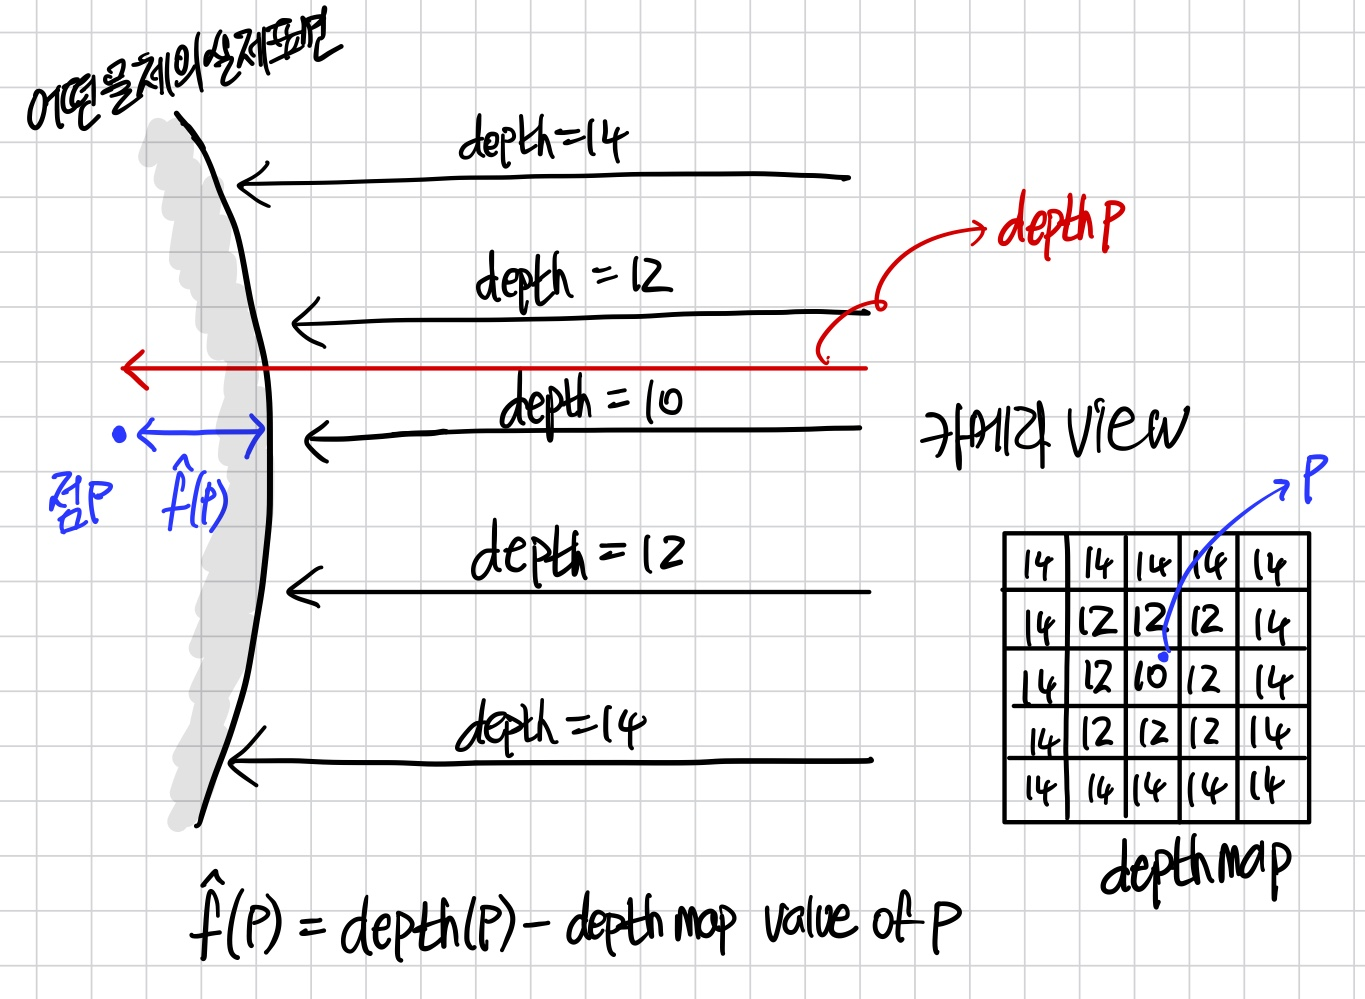 어떤 물체의 실제 표면
depth=14
depth p
depth = 12
depth = 10
카메라 view
점p
f̂(p)
p
depth = 12
14 14 14 14 14
14 12 12 12 14
14 12 10 12 14
14 12 12 12 14
14 14 14 14 14
depth=14
depth map
f̂(p) = depth(p) - depth map value of p